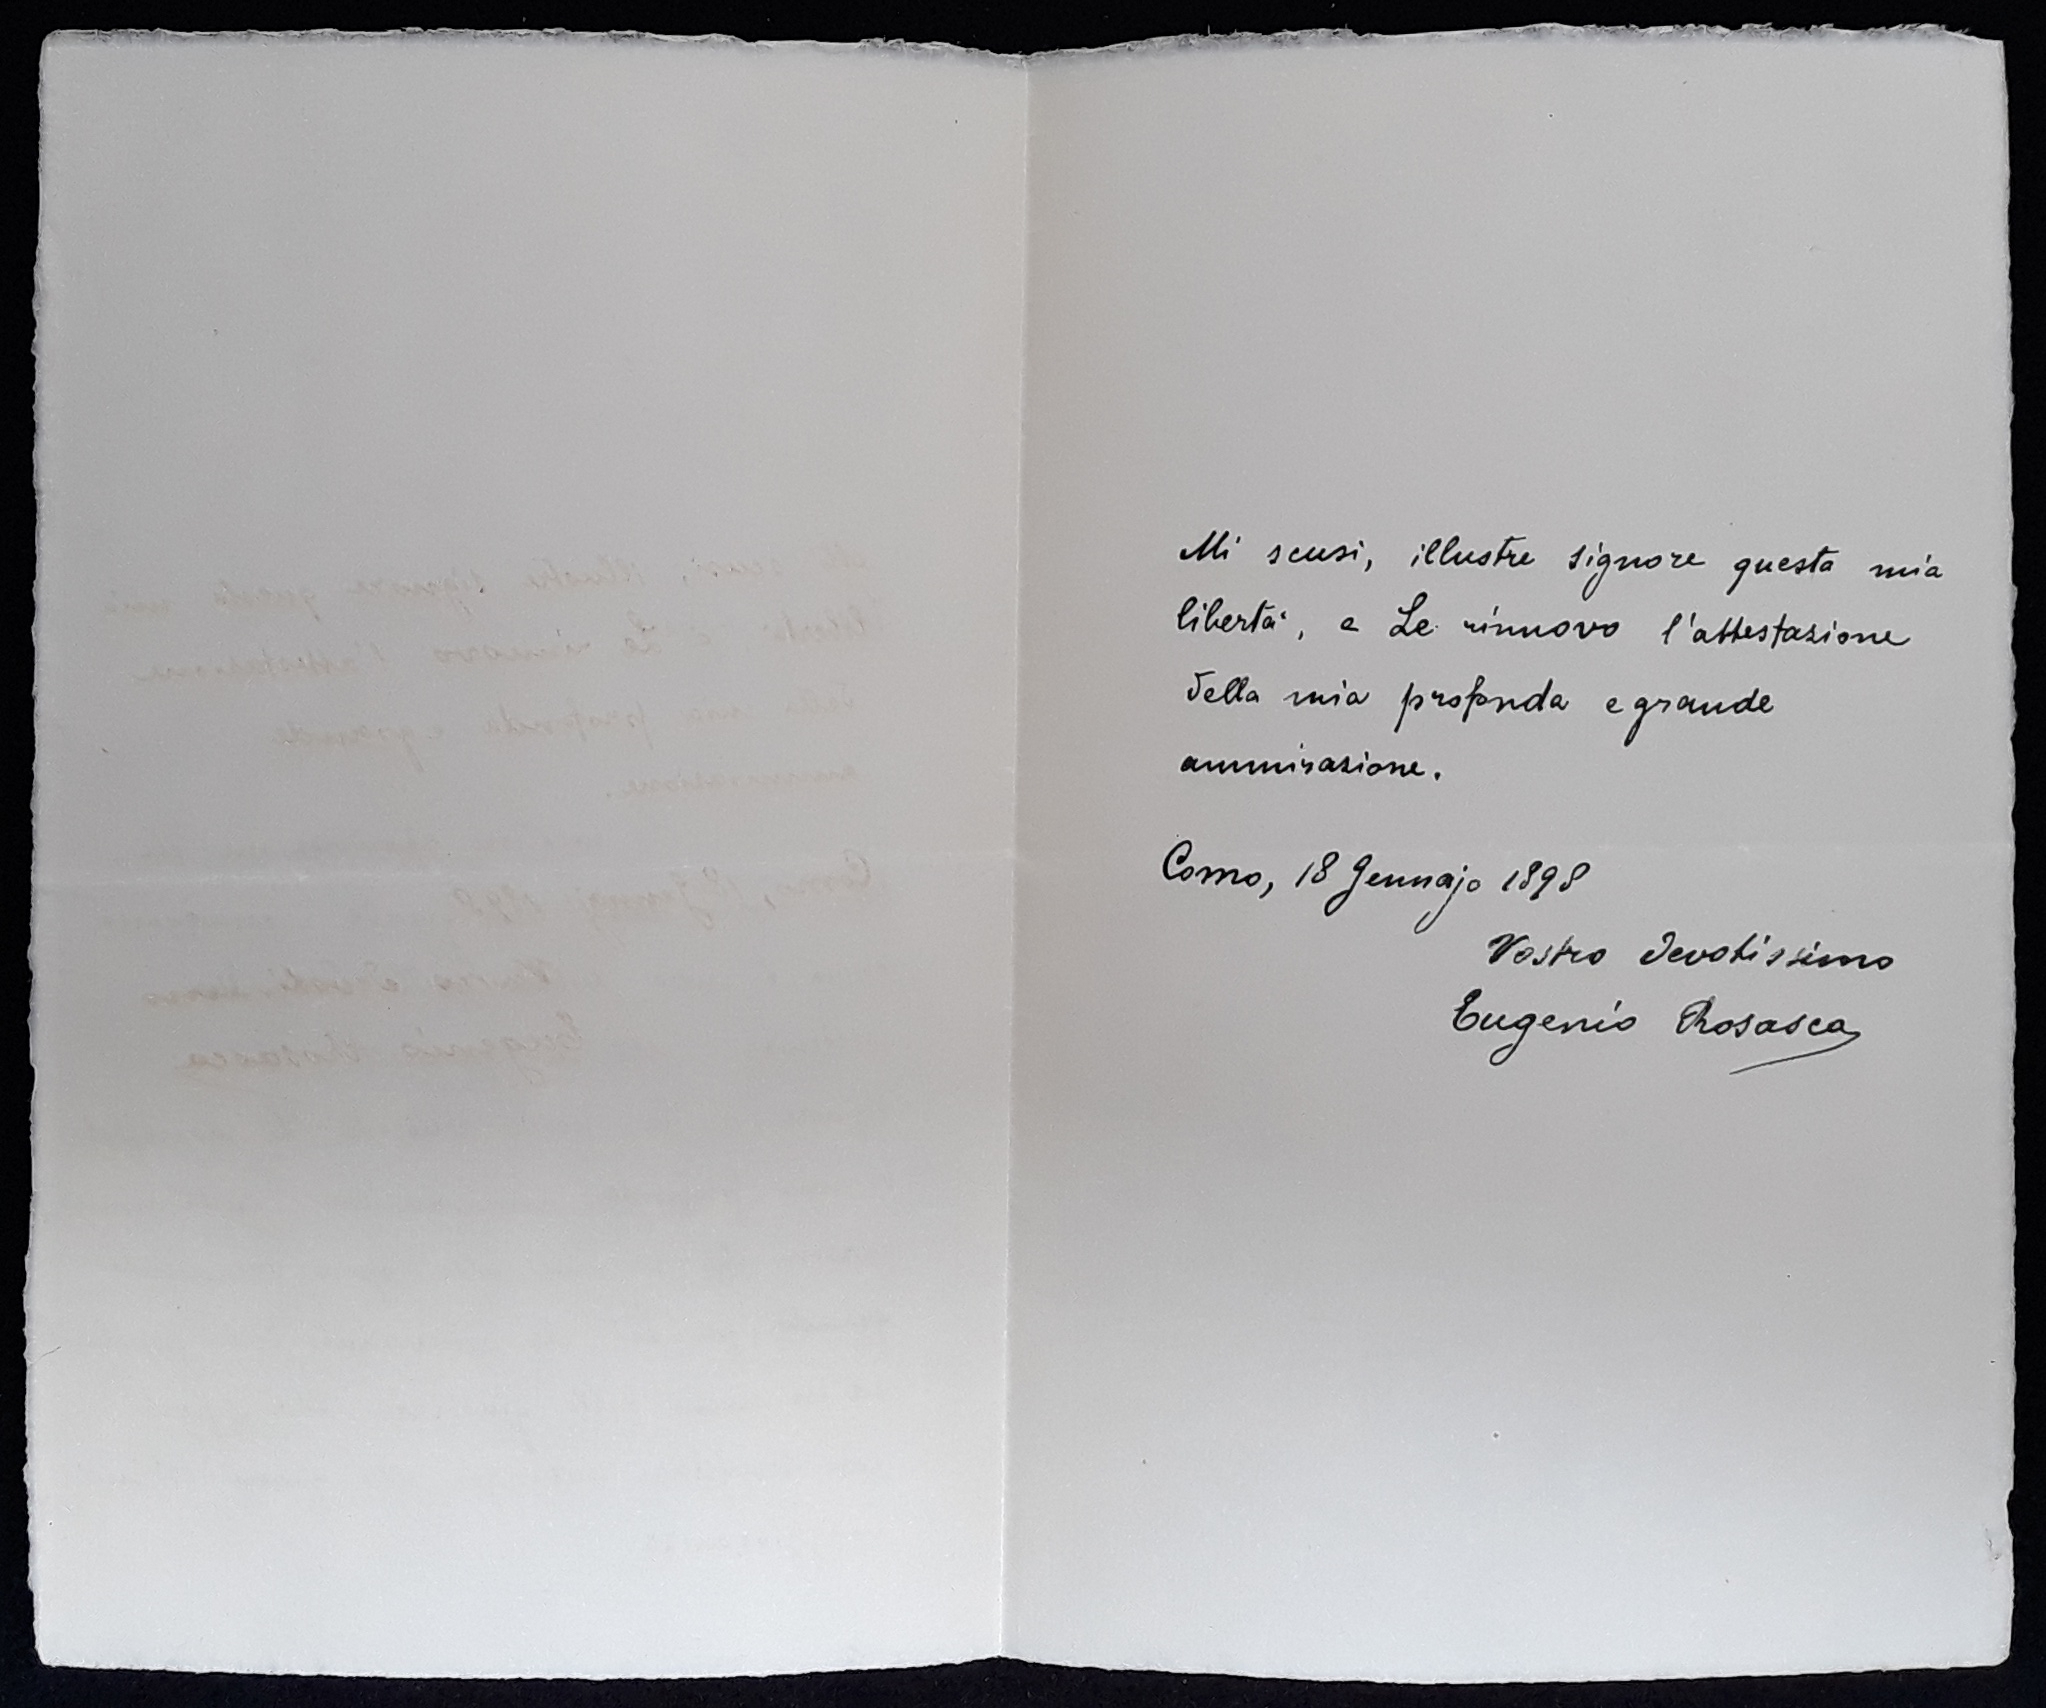 Mi scusi, illustre signore questa mia
libertà, e Le rinnovo l'attestazione
della mia profonda e grande
ammirazione.
Como, 18 Gennajo 1898
Vostro devotissimo
Eugenio Rosasca